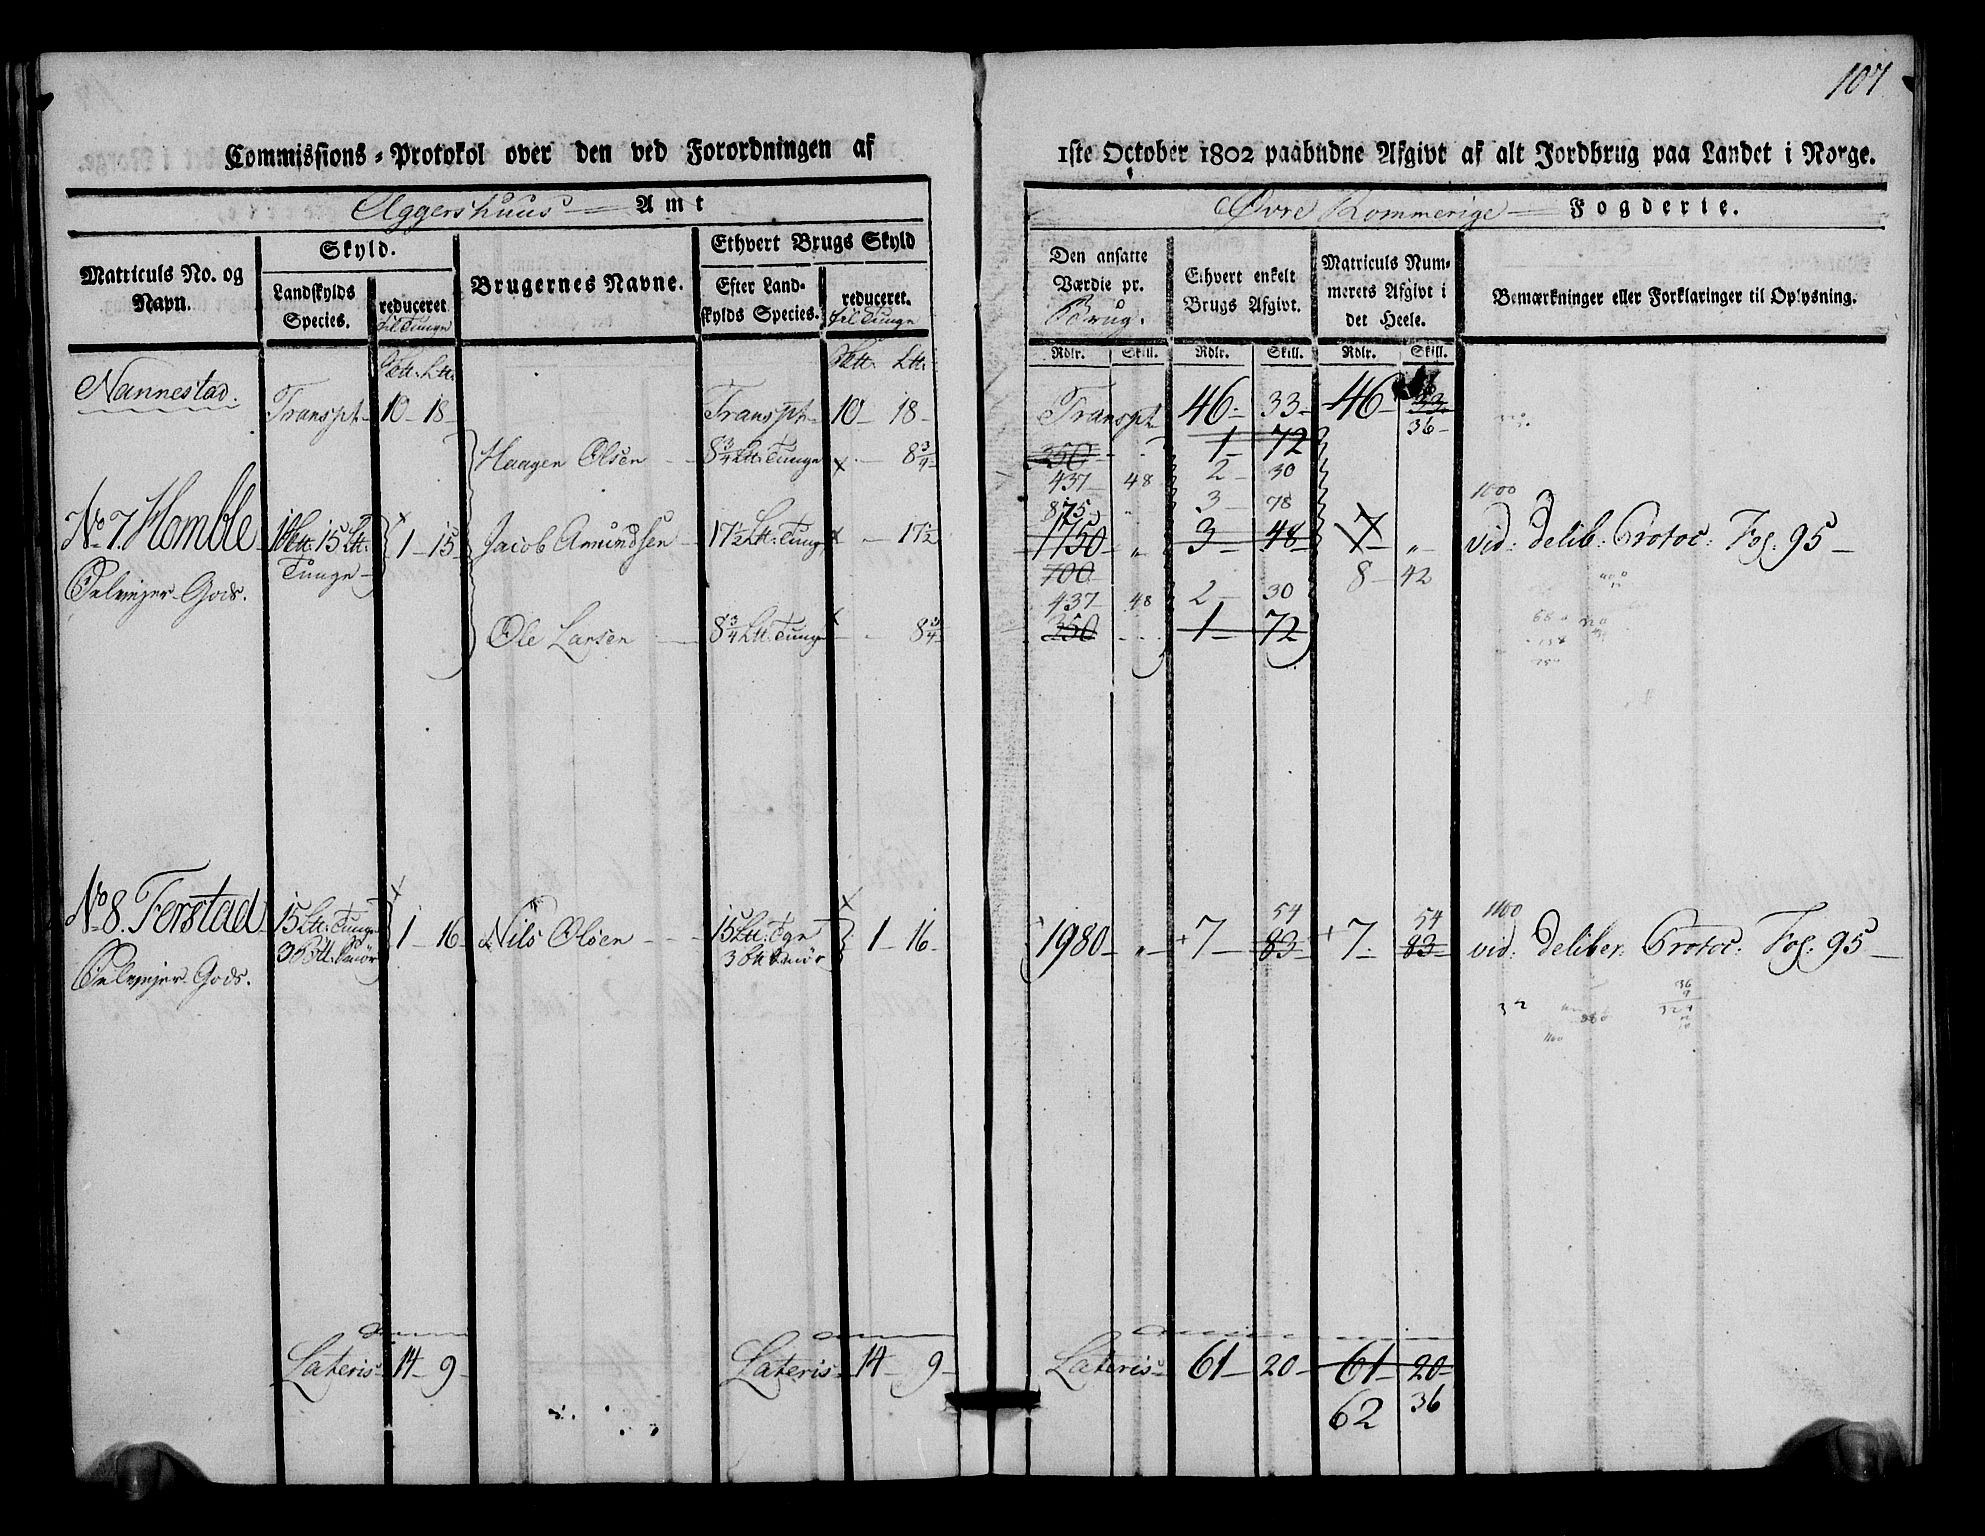 107
Commissions-Protokol over den ved Forordningen af 1ste October 1802 paabudne Afgivt af alt Jordbrug paa Landet i Norge.
Aggershuus Amt
Øvre Rommerige Fogderie.
Matriculs No. og Navn.
Skyld.
Landskylds Species.
reduceret til Tunge
Brugernes Navne.
Ethvert Brugs Skyld
Efter Landskylds Species.
reduceret. til Tunge
Den ansatte Værdie pr. Brug.
Ethvert enkelt Brugs Afgivt.
Matriculs Nummerets Afgivt i det Heele.
Bemærkninger eller Forklaringer til Oplysning.
Rdlr. Skill. Rdlr. Skill. Rdlr. Skill.
Nannestad.
Transpt 10 18 Transpt 10 18 Transpt 46 33 46 33
36
Haagen Olsen 8 3/4 Ltt: Tunge 8 3/4 350 1 72
437 48 2 30
875 3 78 1000
No 7. Homble 1 15 Ltt: Tunge 1 15 Jacob Amundsen 17 1/2 Ltt: Tung 17 1/2 1750 3 48 7 vid: Delib: Protoc: Fol: 95
Gods. 700 8 42
437 48 2 30
Ole Larsen 8 3/4 Ltt: Tunge 8 3/4 350 1 72
54 54 1100
No 8. Forstad 15 Ltt: Tunge 3 Smör 1 16 Nils Olsen 15 Ltt: Tge 3 Smör 1 16 1980 7 83 7 83 vid: Deliber: Protoc: Fol: 95
Gods.
32
36
9
324
Lateris 14 9 Lateris 14 9 Lateris 61 20 61 20
62 36